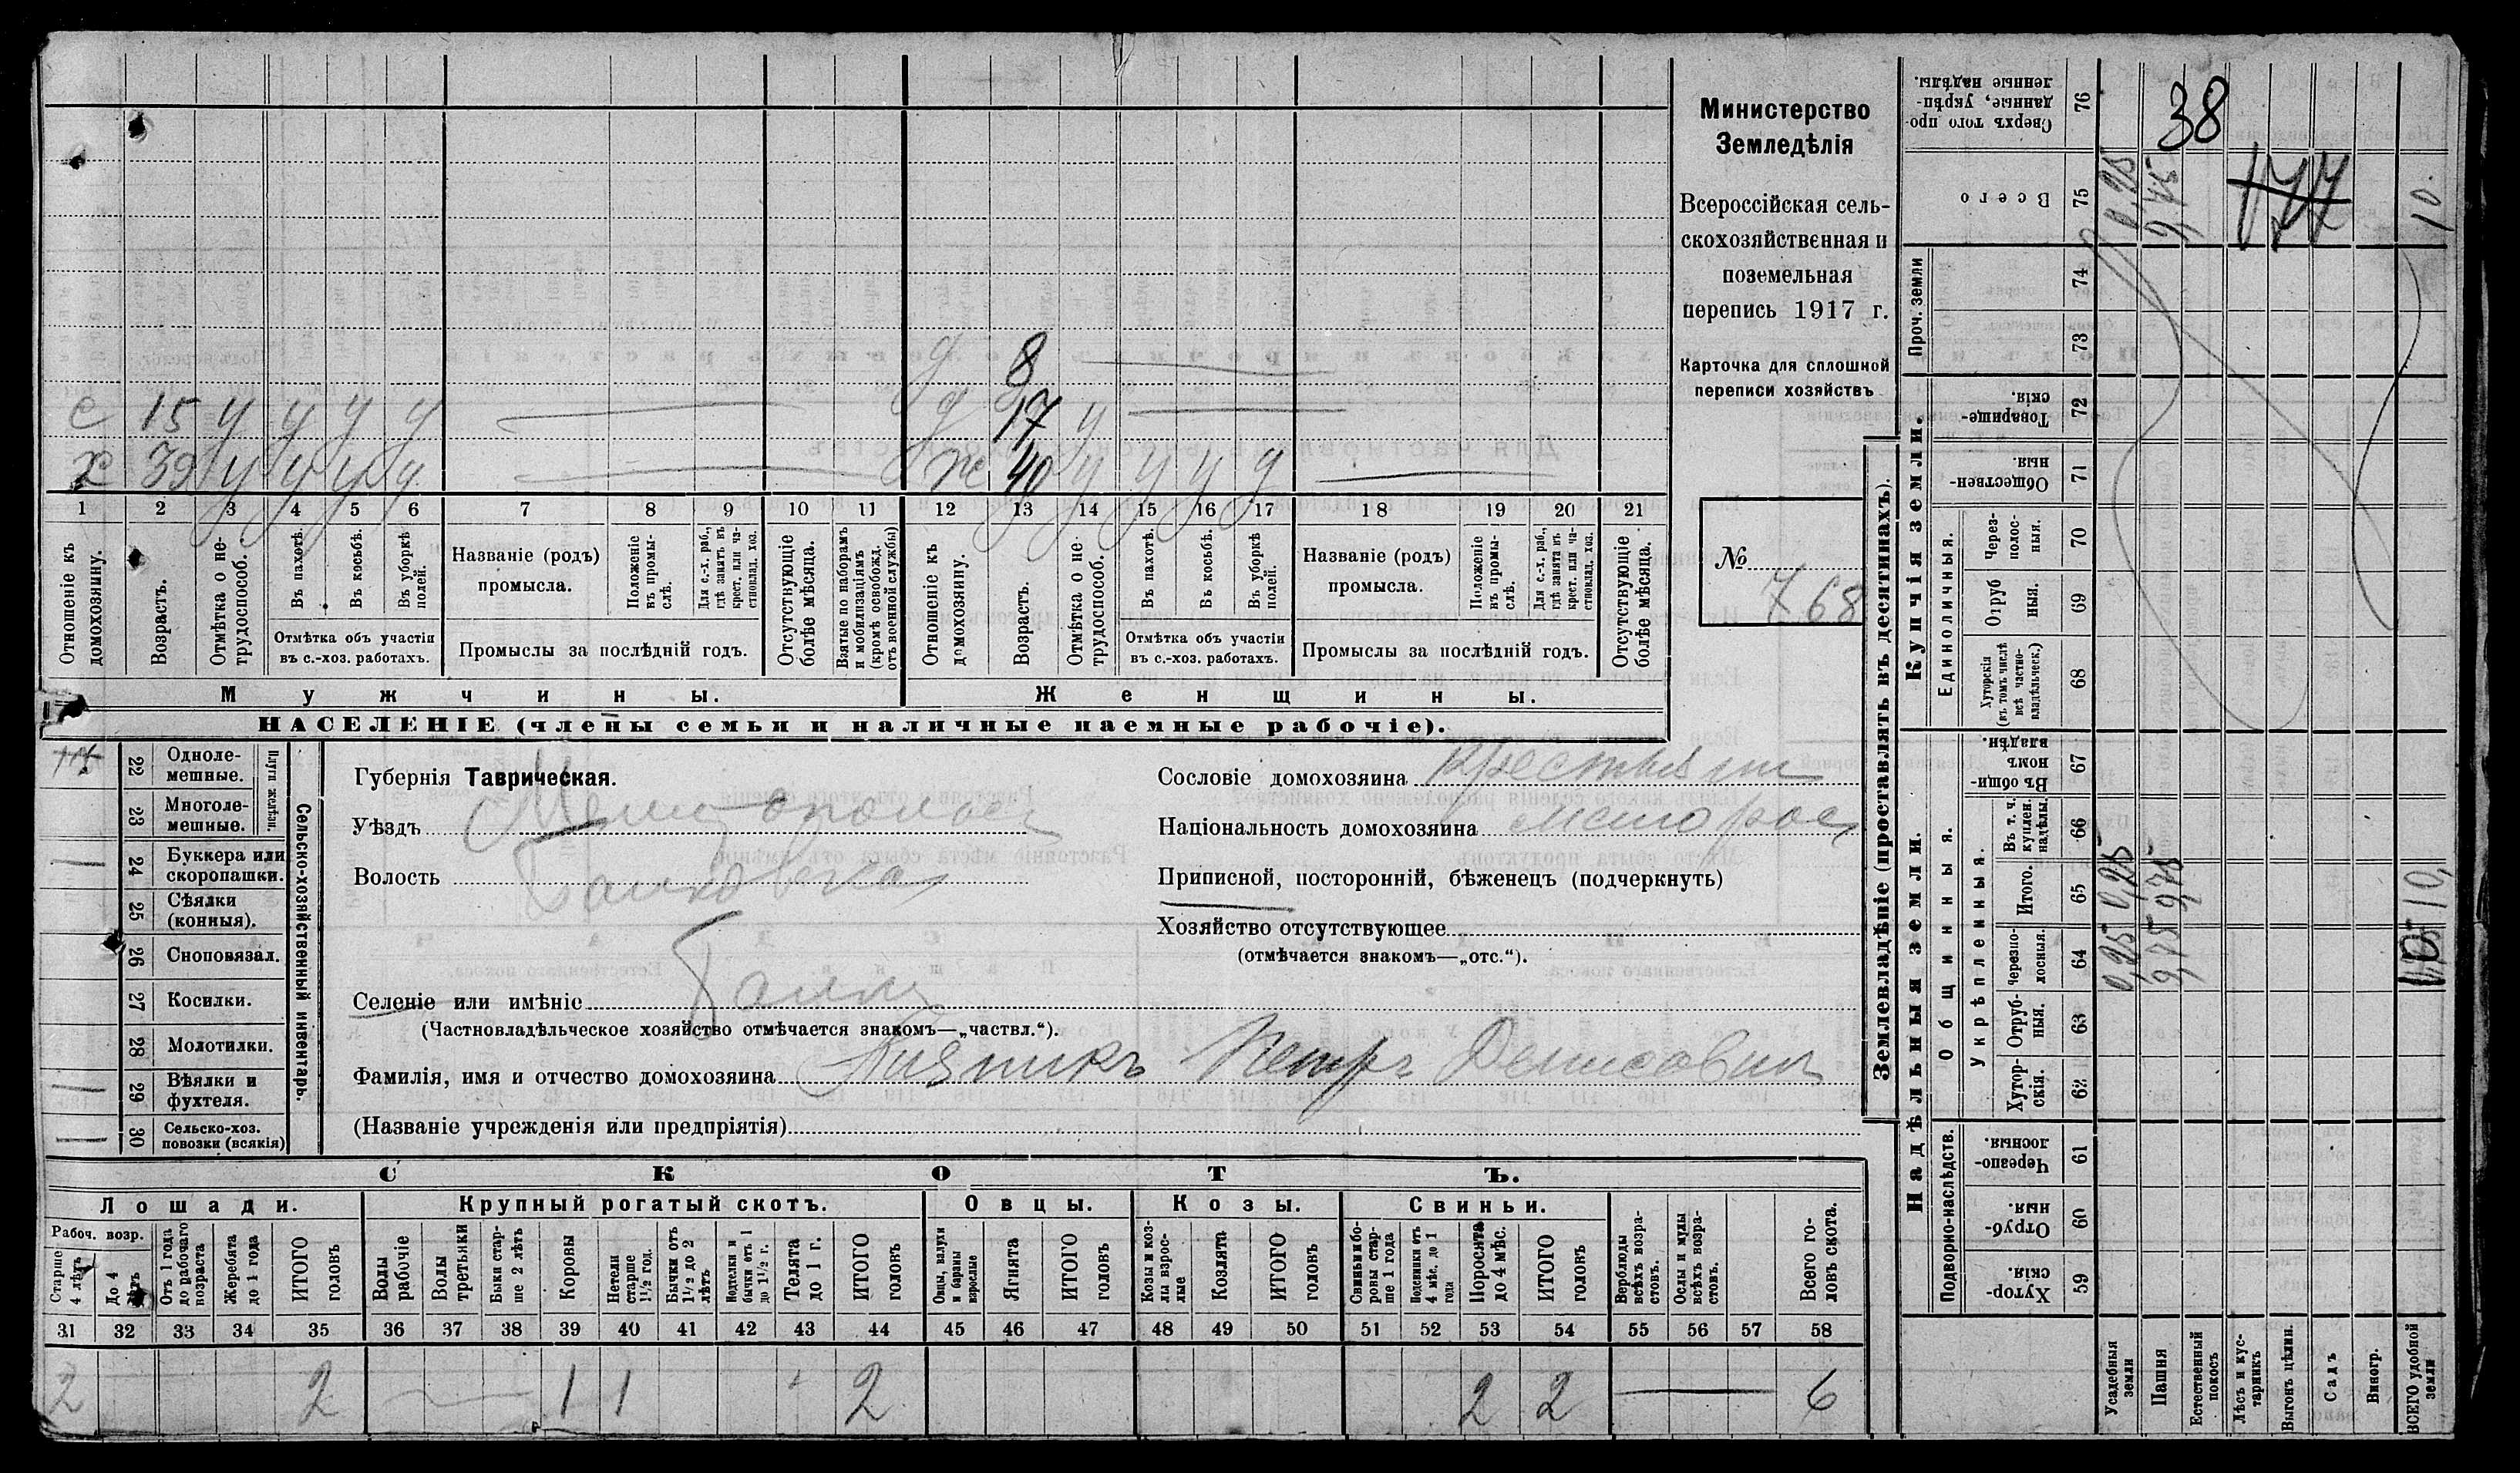 Министерство
Земледѣлія
Всероссійская сель-
скохозяйственная и
поземельная
перепись 1917 г.
Карточка для сплошной
переписи хозяйствъ
№ 768
8
с 15 у у у у д 17 у
х 39 у у у у ж 40 у у у у
1 2 3 4 5 6 7 8 9 10 11 12 13 14 15 16 17 18 19 20 21
Отношеніе къ домохозяину.
Возрастъ.
Отмѣтка о не-трудоспособ.
Въ пахотѣ.
Въ косьбѣ.
Въ уборкѣ полей.
Отмѣтка объ участіи
въ с.-хоз. работахъ.
Названіе (родъ)
промысла.
Положеніе въ промы-слѣ.
Для с.-х. раб., гдѣ занятъ въ крест. или ча-стновлад. хоз.
Промыслы за послѣдній годъ.
Отсутствующіе болѣе мѣсяца.
Взятые по наборамъ и мобилизаціямъ (кромѣ освобожд. отъ военной службы)
Отношеніе къ домохозяину.
Возрастъ.
Отмѣтка о не-трудоспособ.
Въ пахотѣ.
Въ косьбѣ.
Въ уборкѣ полей.
Отмѣтка объ участіи
въ с.-хоз. работахъ.
Названіе (родъ)
промысла.
Положеніе въ промы-слѣ.
Для с.-х. раб., гдѣ занята въ крест. или ча-стновлад. хоз.
Промыслы за послѣдній годъ.
Отсутствующіе болѣе мѣсяца.
Мужчины. Женщины.
НАСЕЛЕНІЕ (члены семьи и наличные наемные рабочіе).
22 Одноле-мешные.
23 Многоле-мешные.
Плуги желѣзн.
24 Буккера или скоропашки.
25 Сѣялки (конныя).
26 Сноповязал.
27 Косилки.
28 Молотилки.
29 Вѣялки и фухтеля.
30 Сельско-хоз. повозки (всякія)
Сельско-хозяйственный инвентарь.
Губернія Таврическая.
Уѣздъ Мелитопольск
Волость Балковская
Селеніе или имѣніе Балки
(Частновладѣльческое хозяйство отмѣчается знакомъ—„частвл.“).
Фамилія, имя и отчество домохозяина Петръ Денисович
(Названіе учрежденія или предпріятія)
Сословіе домохозяина крестьянин
Національность домохозяина малорос
Приписной, посторонній, бѣженецъ (подчеркнуть)
Хозяйство отсутствующее
(отмѣчается знакомъ—„отс.“).
СКОТЪ.
Лошади. Крупный рогатый скотъ. Овцы. Козы. Свиньи.
Рабоч. возр.
Старше 4 лѣтъ
До 4 лѣтъ
Отъ 1 года до рабочаго возраста
Жеребята до 1 года
ИТОГО головъ
Волы рабочіе
Волы третьяки
Быки стар-ше 2 лѣтъ
Коровы
Нетели старше 1½ год.
Бычки отъ 1½ до 2 лѣтъ
Нодтелки и бычки отъ 1 до 1½ г.
Телята до 1 г.
ИТОГО головъ
Овцы, валухи и бараны взрослые
Ягнята
ИТОГО головъ
Козы и коз-лы взрос-лые
Козлята
ИТОГО головъ
Свиньи бо-ровы стар-ше 1 года
Подсвинки отъ 4 мѣс. до 1 года
Поросята до 4 мѣс.
ИТОГО головъ
Верблюды всѣхъ возра-стовъ.
Ослы и мулы всѣхъ возра-стовъ.
Всего го-ловъ скота.
31 32 33 34 35 36 37 38 39 40 41 42 43 44 45 46 47 48 49 50 51 52 53 54 55 56 57 58
2 2 1 1 2 2 2 6
Землевладѣніе (проставлять въ десятинахъ).
Купчія земли.
Надѣльныя земли.
76 Сверхъ того про-данные, укрѣп-ленные надѣлы.
38
75 Всего
0,25 9,75 177 10.
Проч. земли
74
73
72 Товарище-скія.
71 Обществен-ныя
Единоличныя.
70 Через-полос-ныя.
69 Отруб-ныя.
68 Хуторскія (въ томъ числѣ всѣ частно-владѣльческ.)
67 Въ общи-номъ владѣн.
Общинныя.
Укрѣпленныя.
66 Въ т. ч. куплен. надѣлы.
65 Итого.
0,25 9,75 10,
64 Черезпо-лосныя.
0,25 9,75
63 Отруб-ныя.
62 Хутор-скія.
Подворно-наслѣдств.
61 Черезпо-лосныя.
60 Отруб-ныя
59 Хутор-скія.
Усадебныя земли
Пашня
Естественный покосъ
Лѣсъ и кус-тарникъ
Выгонъ цѣлин.
Садъ
Виногр.
ВСЕГО удобной земли